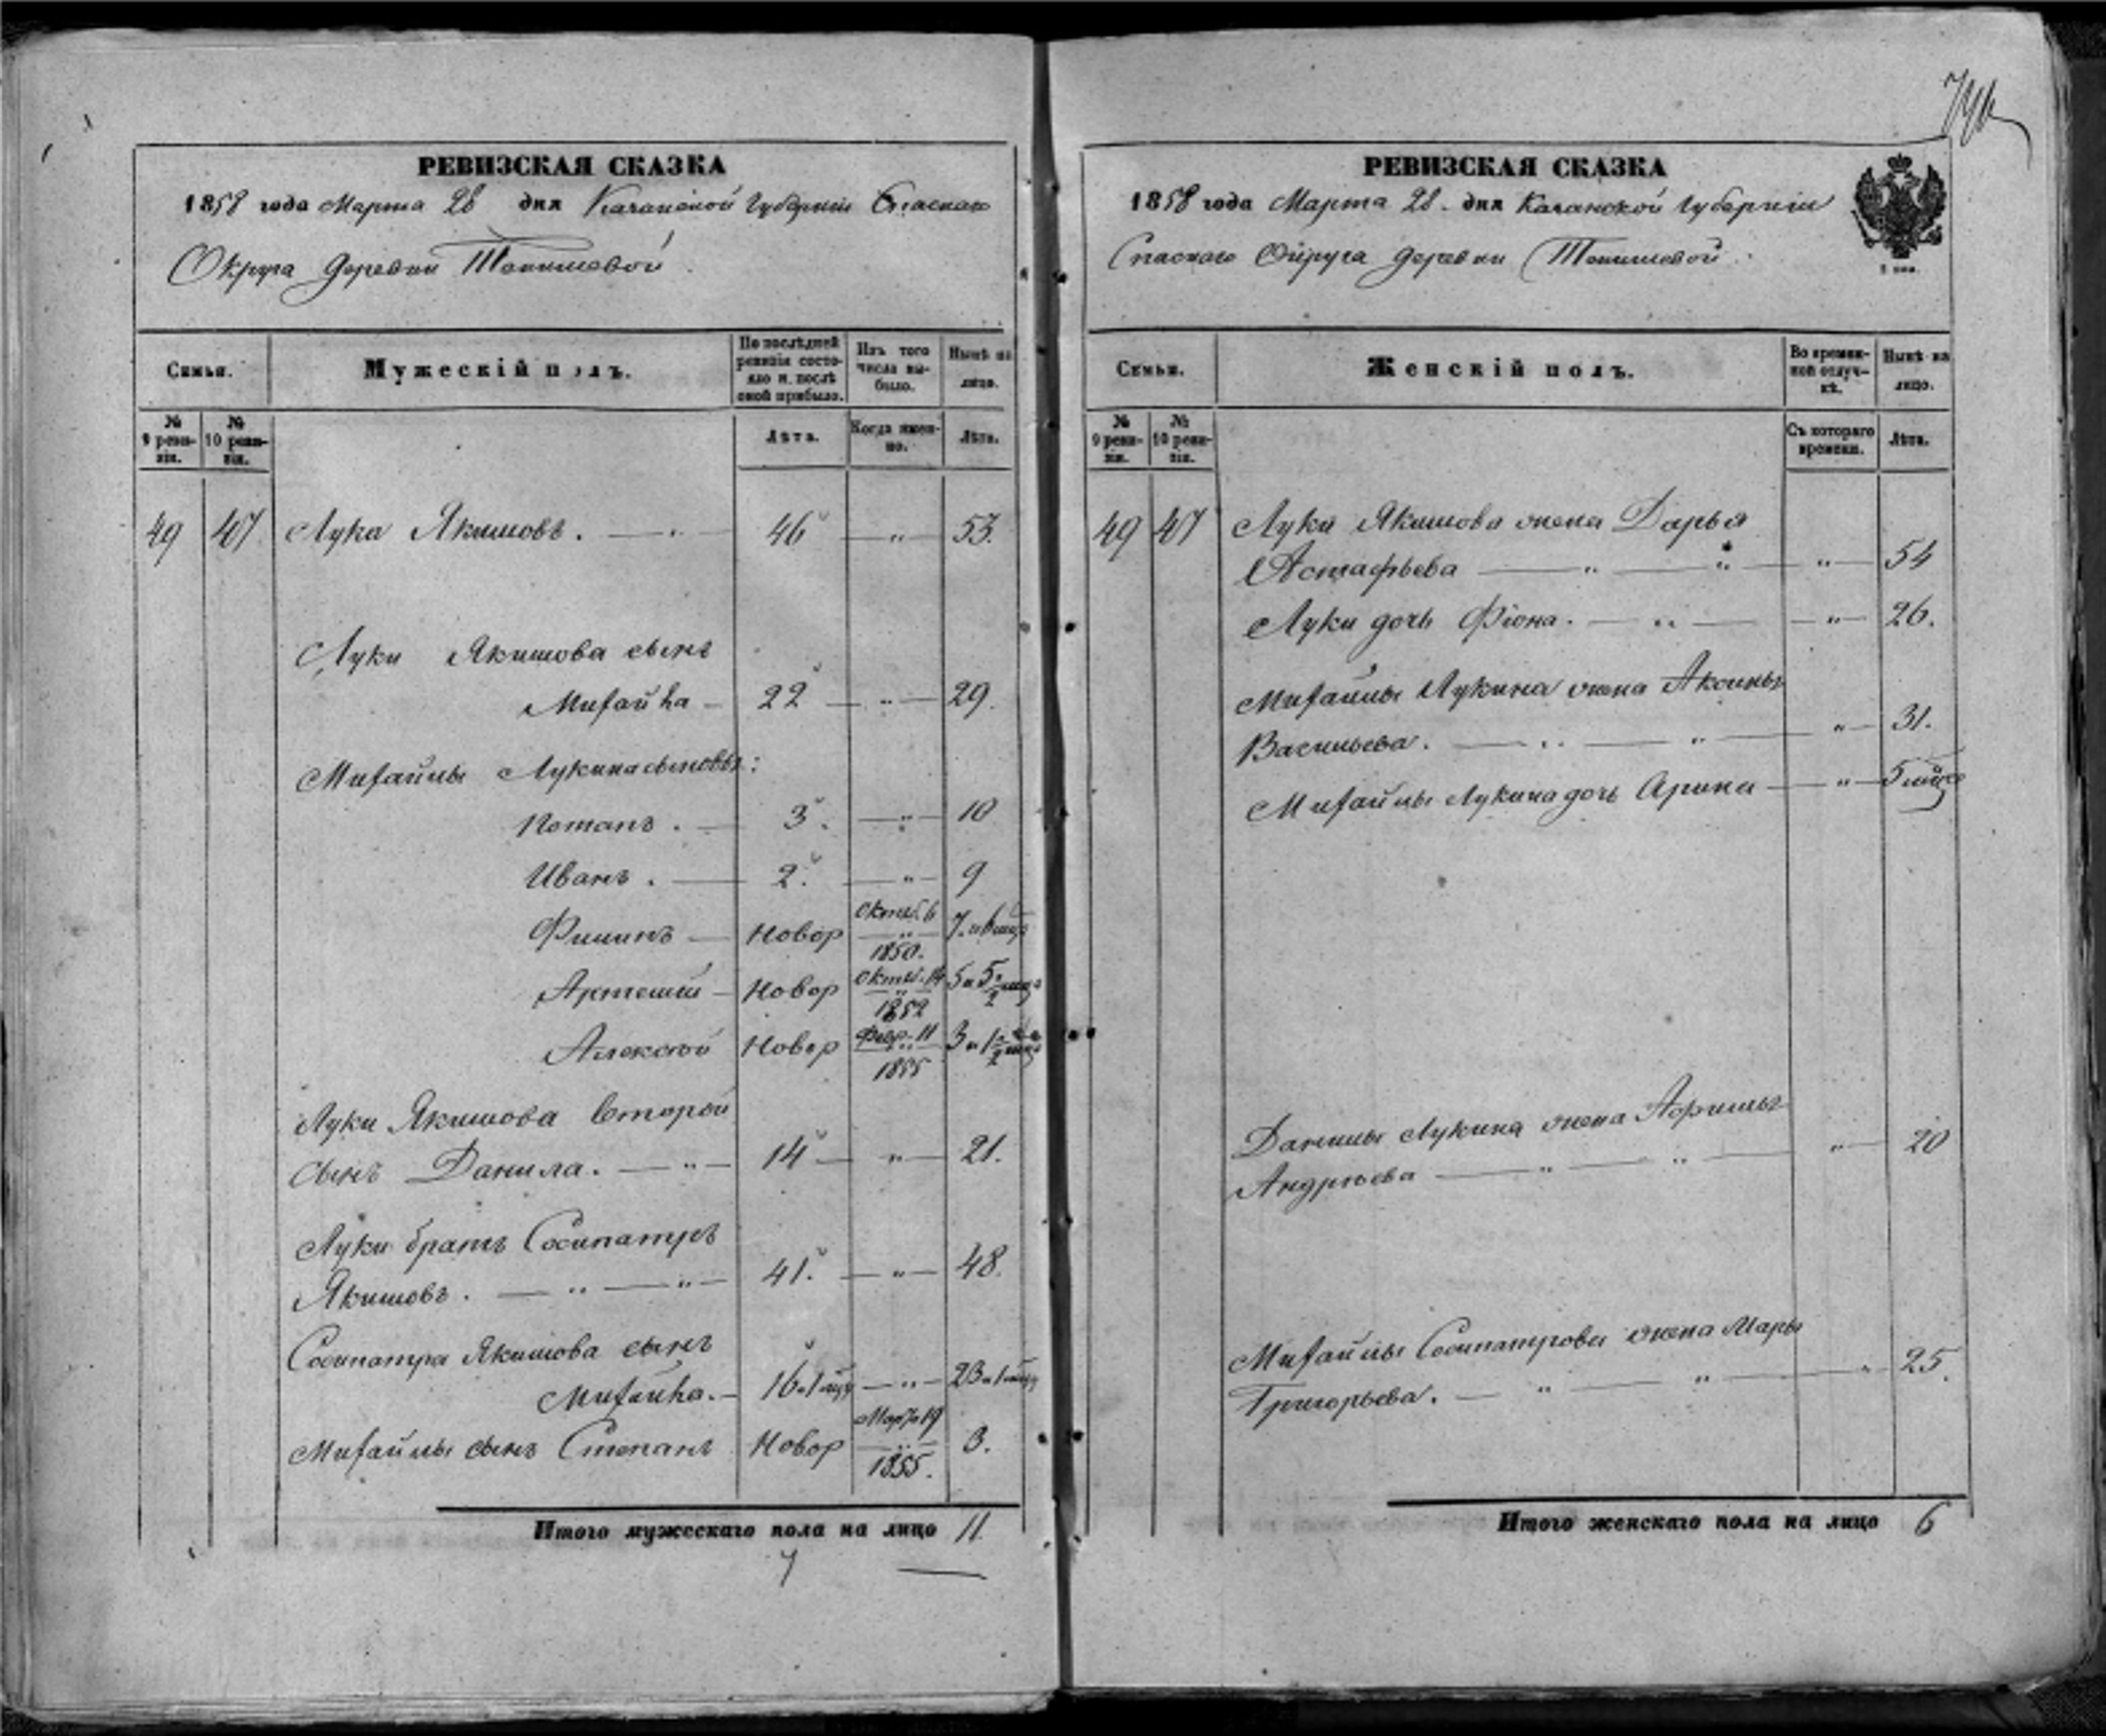 РЕВИЗСКАЯ СКАЗКА
1858 года Марта 28 дня Казанской Губернии Спаскаго
Округа деревни
Семьи.
Мужескій полъ.
По послѣдней ревизіи состояло и послѣ оной прибыло.
Изъ того числа выбыло.
Нынѣ на лицо.
№ 9 ревизіи.
№ 10 ревизіи.
Лѣта.
Когда именно.
Лѣта.
49 47 Лука Якимовъ. 46 " 53.
Луки Якимова сынъ
Михайла 22 " 29.
Михайлы Лукина сыновья:
Потапъ. 3. " 10
Иванъ. 2. " 9
Филипъ Новор Октяб. 6 1850. 7 и 6 мцъ
Артемий Новор Октяб. 14 1852 5 и 5 1/2 мца
Алексей Новор Фев. 11 1855 3 и 1 1/2 мца
Луки Якимова второй
сынъ Данила. " 14 " 21.
Луки братъ Сосипатръ
Якимовъ. " " 41. " 48.
Сосипатра Якимова сынъ
Михайла. 16 и 1 мцъ " 23 и 1 мцъ
Михайлы сынъ Степанъ Новор Мар 19 1855. 3.
Итого мужескаго пола на лицо 11.
РЕВИЗСКАЯ СКАЗКА
1858 года Марта 28. дня Казанской Губернии
Спаскаго Округа деревни
Семьи.
Женскій полъ.
Во временной отлучкѣ.
Нынѣ на лицо.
№ 9 ревизіи.
№ 10 ревизіи.
Съ котораго времени.
Лѣта.
49 47 Луки Якимова жена Дарья
Астафьева " " " 54
Луки дочь Фіона. " " 26.
Михайлы Лукина жена Аксинья
Васильева. " " " 31.
Михайлы Лукина дочь Арина " 5
Данилы Лукина жена
Андреева " " " 20
Михайлы Сосипатрова жена Марья
Григорьева. " " " 25.
Итого женскаго пола на лицо 6